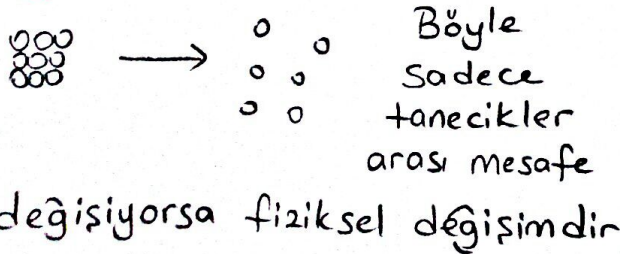 Böyle
sadece
tanecikler
arası mesafe
değişiyorsa fiziksel değişimdir